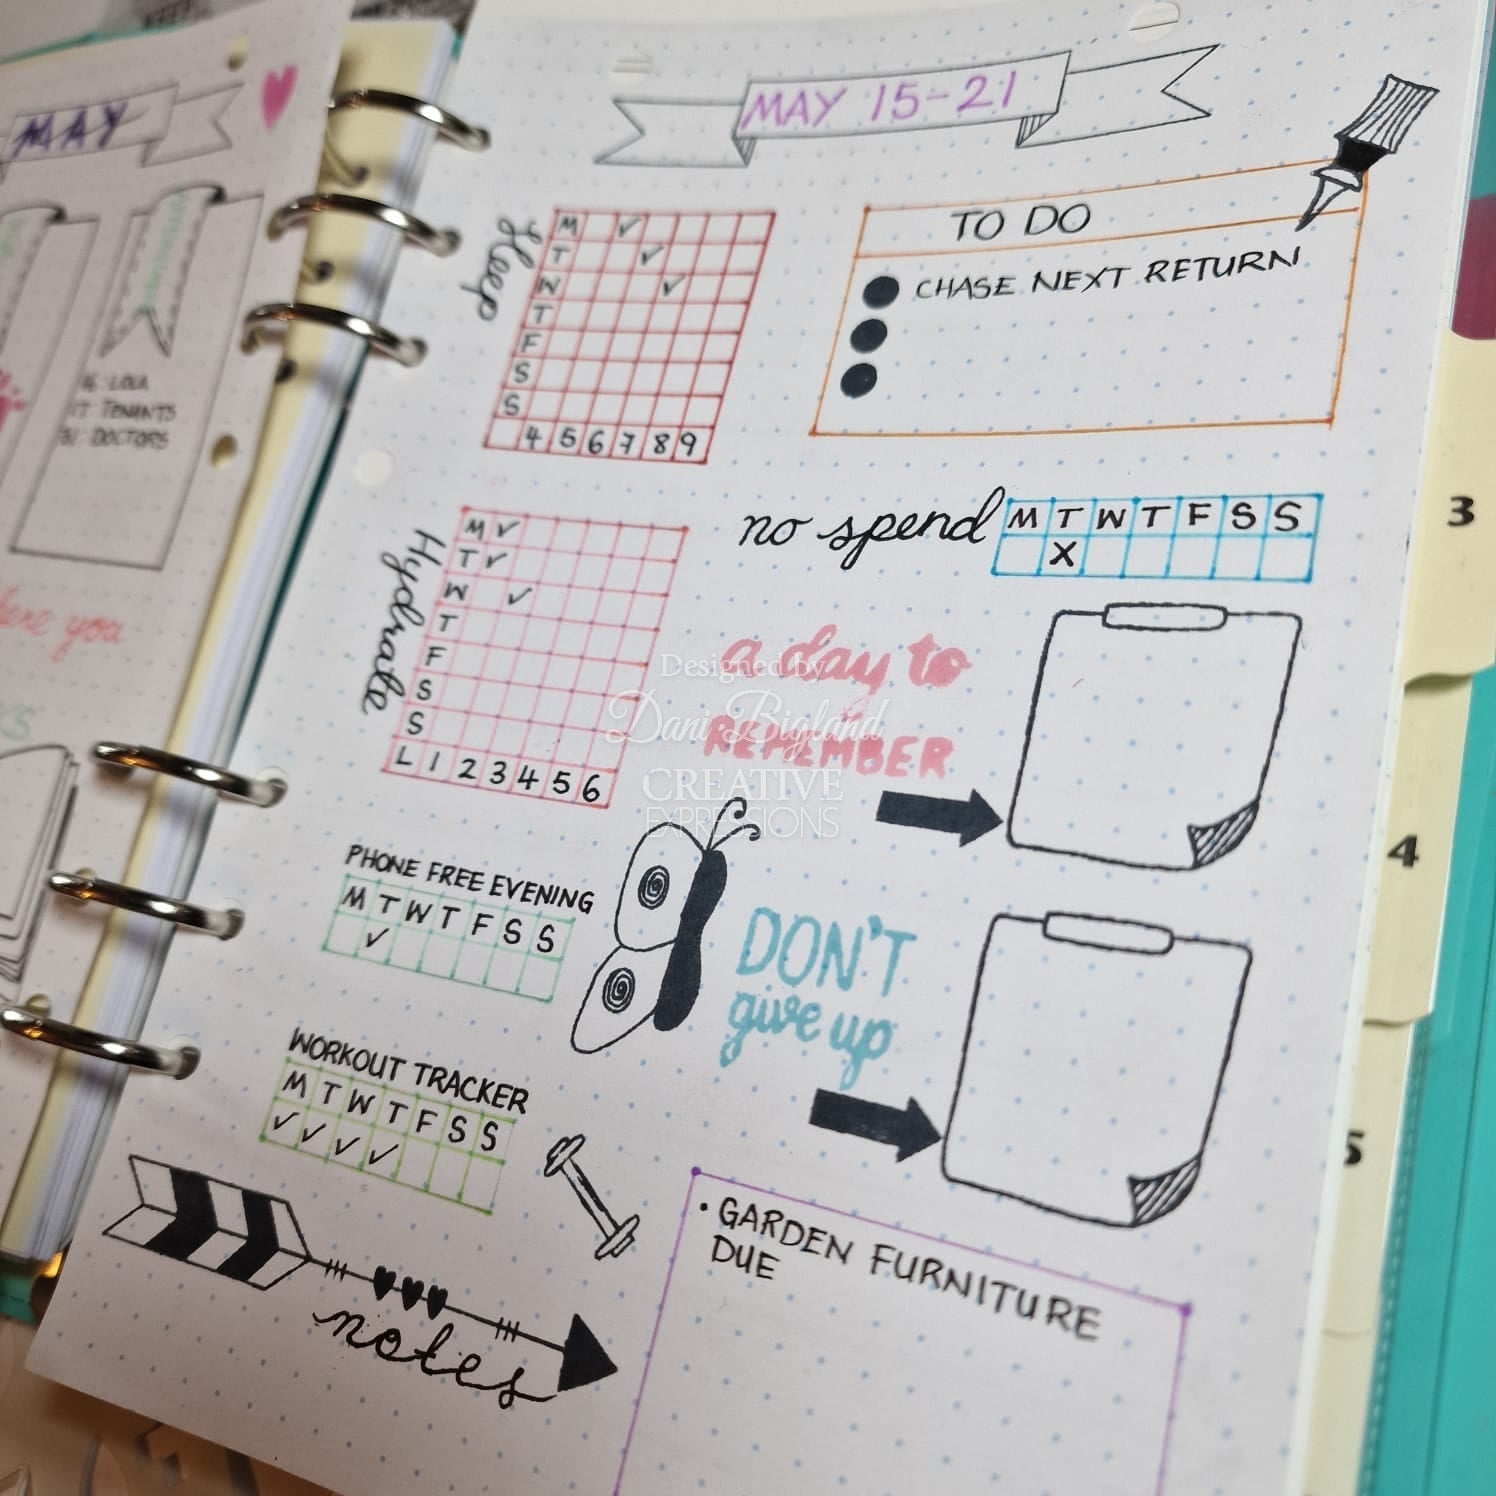 MAY
16: LOLA
17: TENANTS
31: DOCTORS
here you
MAY 15-21
Sleep
M ✓
T ✓
W ✓
T
F
S
S
4 5 6 7 8 9
TO DO
CHASE NEXT RETURN
Hydrate
M ✓
T ✓
W ✓
T
F
S
S
L 1 2 3 4 5 6
no spend M T W T F S S
X
a day to
REMEMBER
Designed by
Dani Bigland
CREATIVE
EXPRESSIONS
PHONE FREE EVENING
M T W T F S S
✓
DON'T
give up
WORKOUT TRACKER
M T W T F S S
✓ ✓ ✓ ✓
notes
• GARDEN FURNITURE
DUE
3
4
5